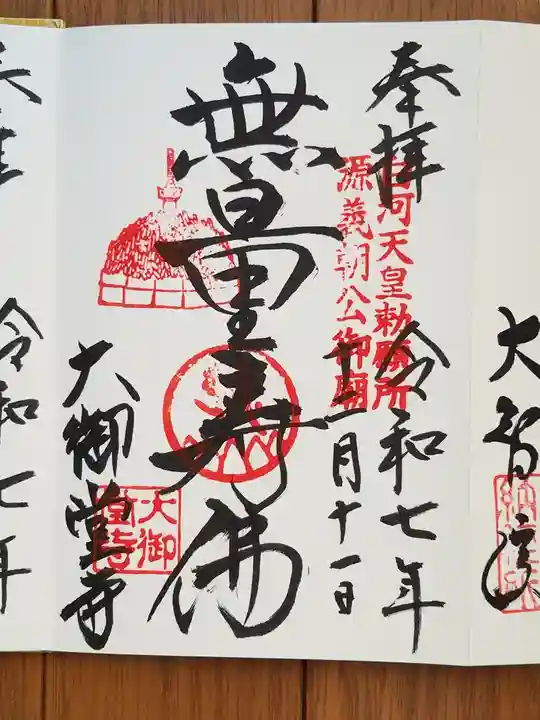 大智院
奉拝
白河天皇勅願所
源義朝公御廟
令和七年
十一月十一日
無量壽佛
大御堂寺
大御
堂寺
令和七年